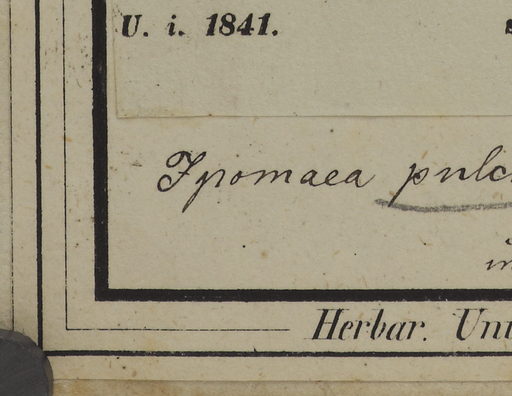 U. i. 1841.
Ipomaea pulc
in
Herbar. Uni